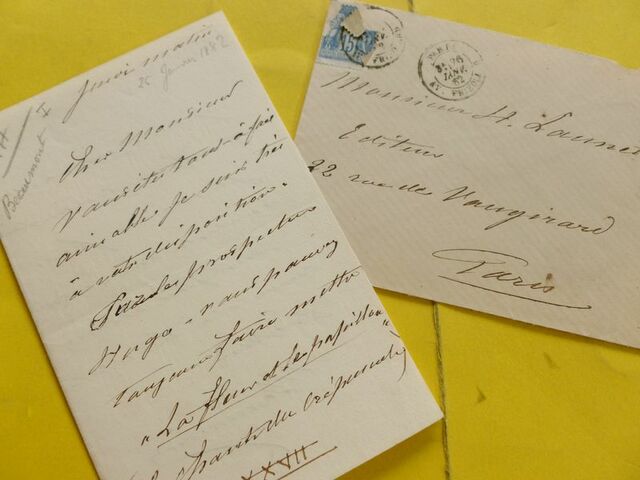 Jeudi matin
25 Janvier 1882
I
Beaumont
Cher Monsieur
Vous êtes tout-à-fait
aimable. Je suis très
à votre disposition.
Pour le prospectus
Hugo - vous pouvez
toujours faire mettre
" La fleur et le papillon "
Chants du Crépuscule
XXVII
15
PARIS
26
JANV
82
Monsieur H. Launette
Editeur
22 rue de Vaugirard
Paris